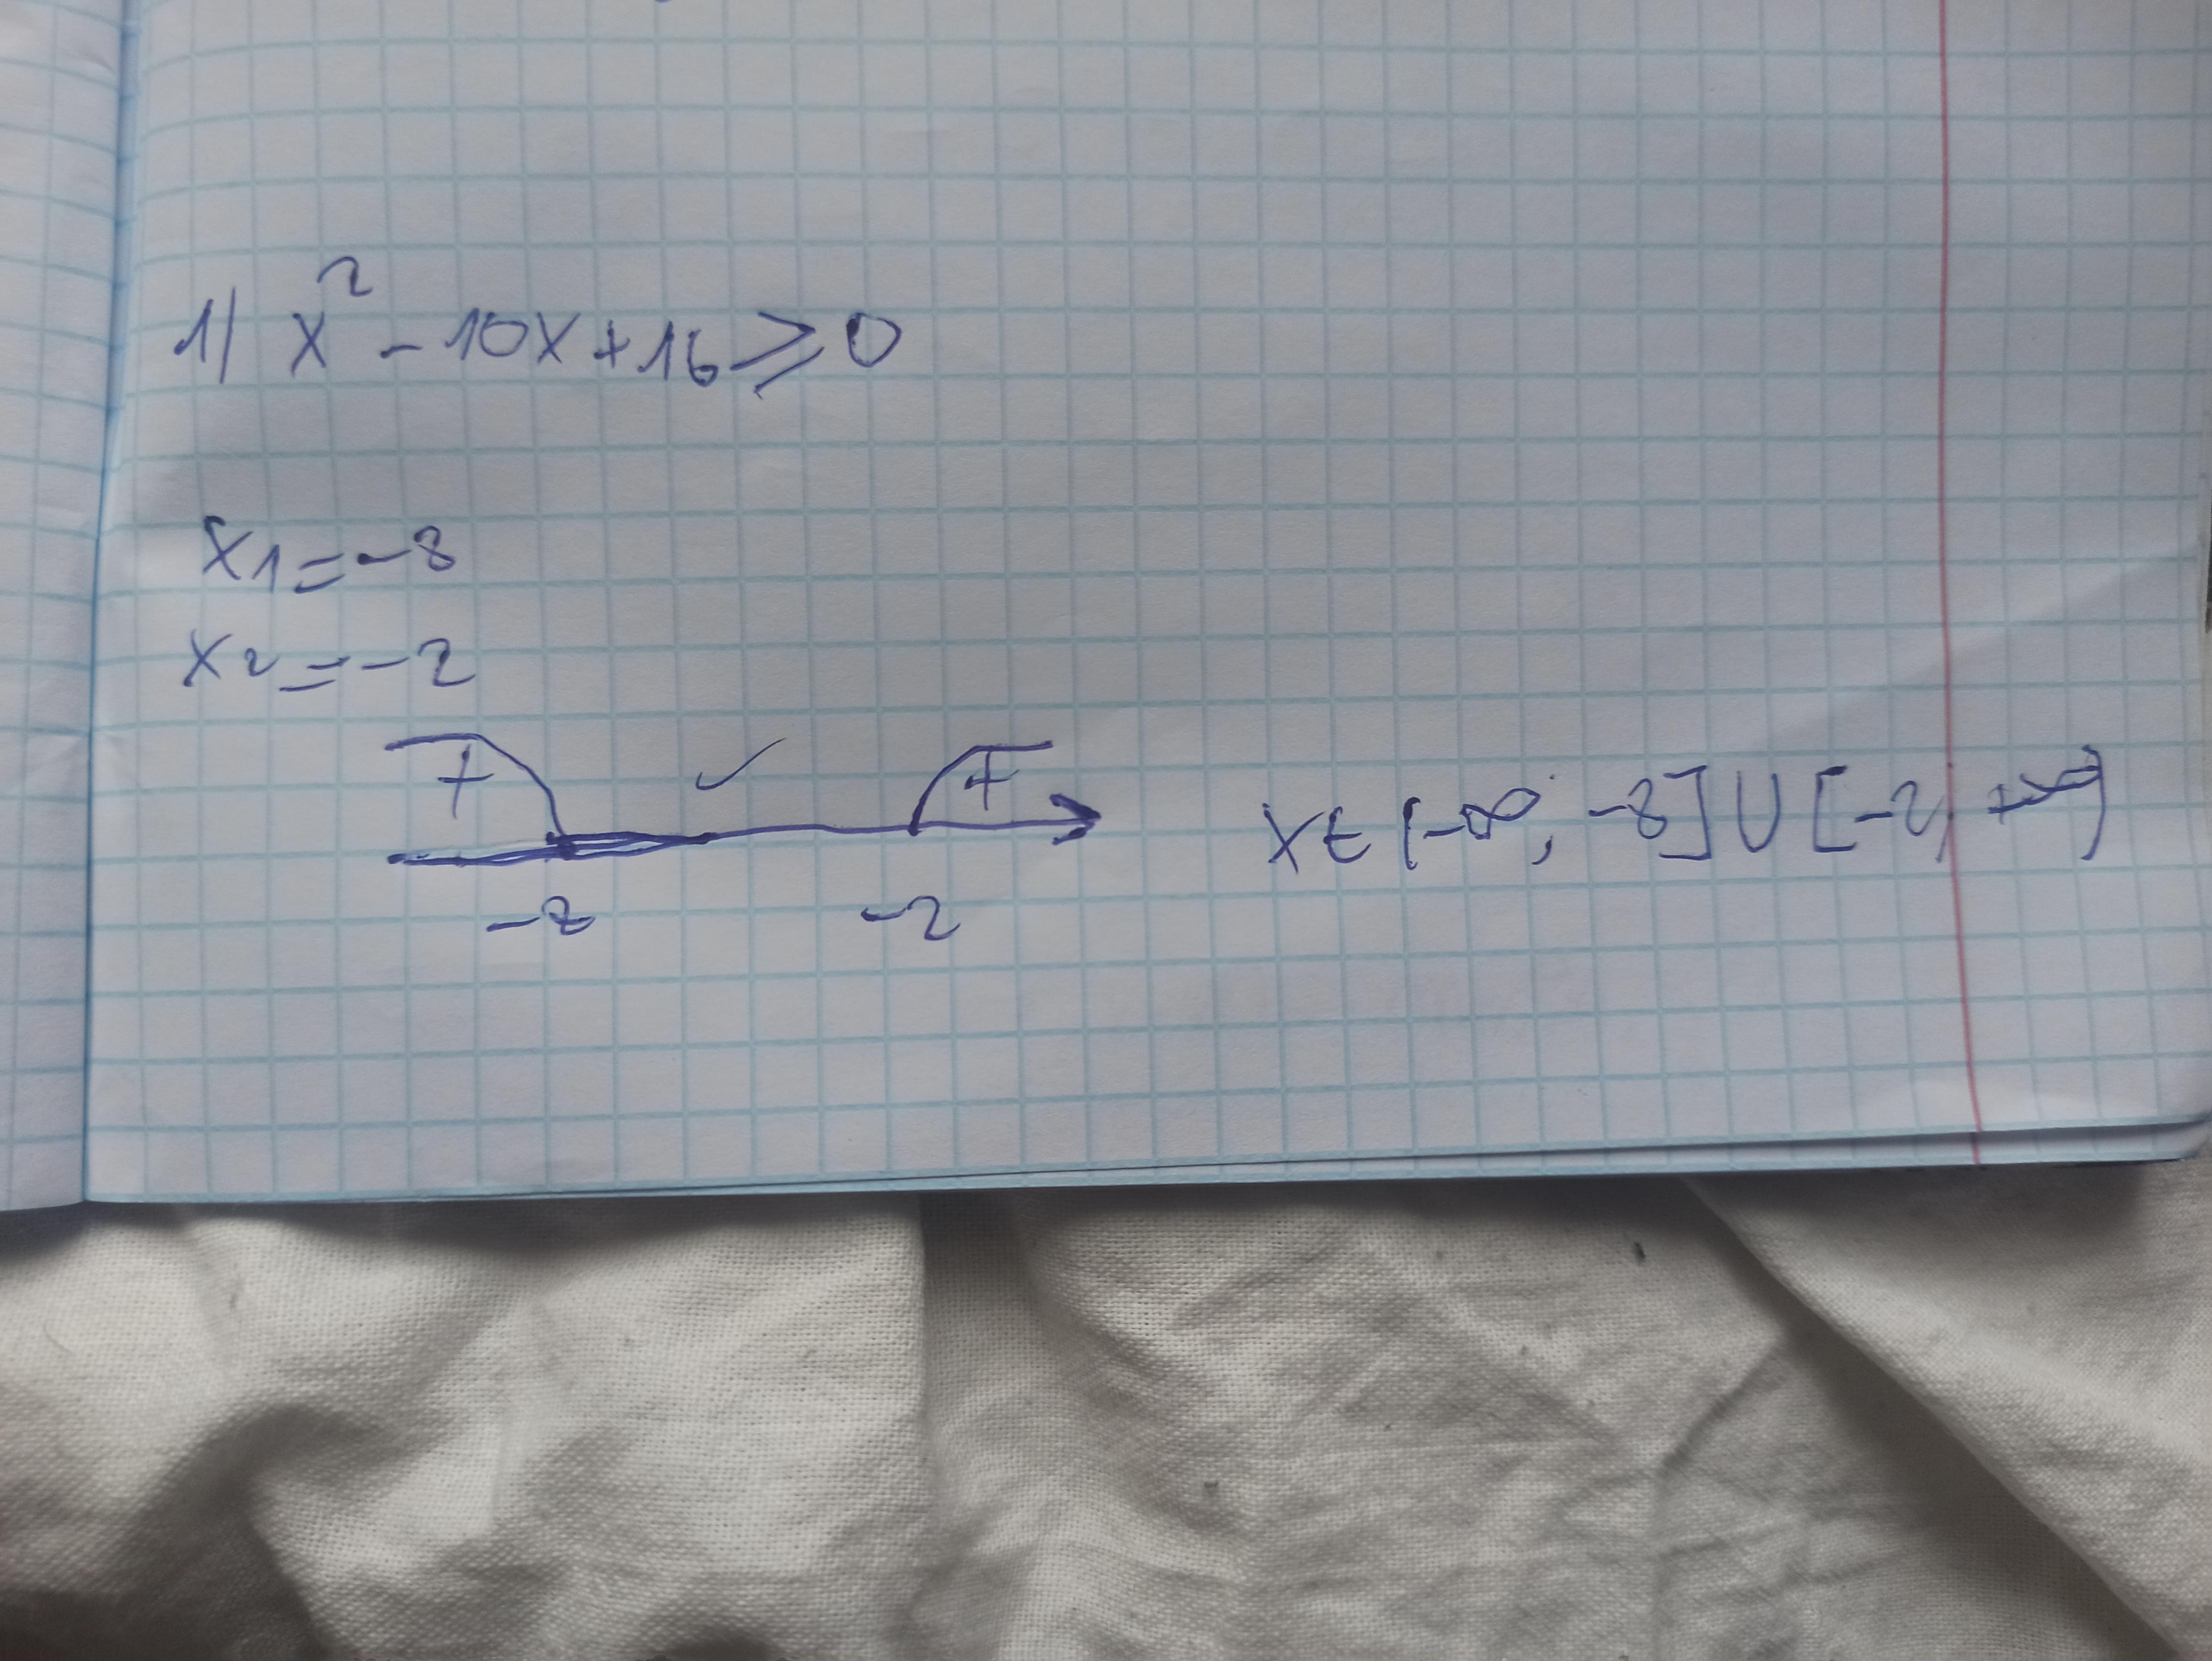 1) x² - 10x + 16 ⩾ 0
x1 = -8
x2 = -2
+ +
x ∈ (-∞; -8] ∪ [-2, +∞)
-8 -2